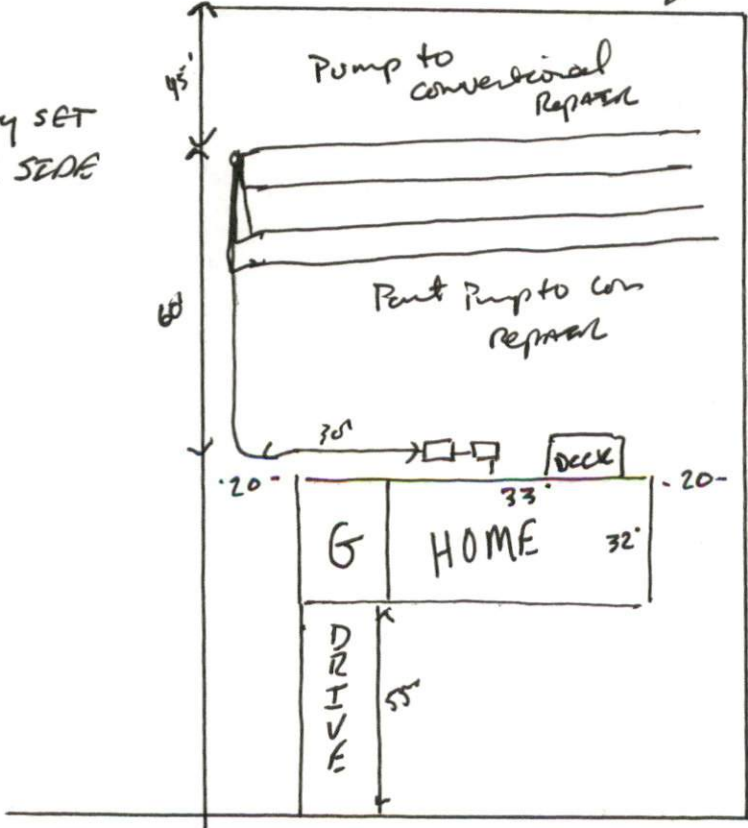 45'
Pump to
conventional
Repair
SET
SIDE
60'
Pump to con
Repair
30'
DECK
-20-
33'
-20-
G
HOME
32'
DRIVE
55'